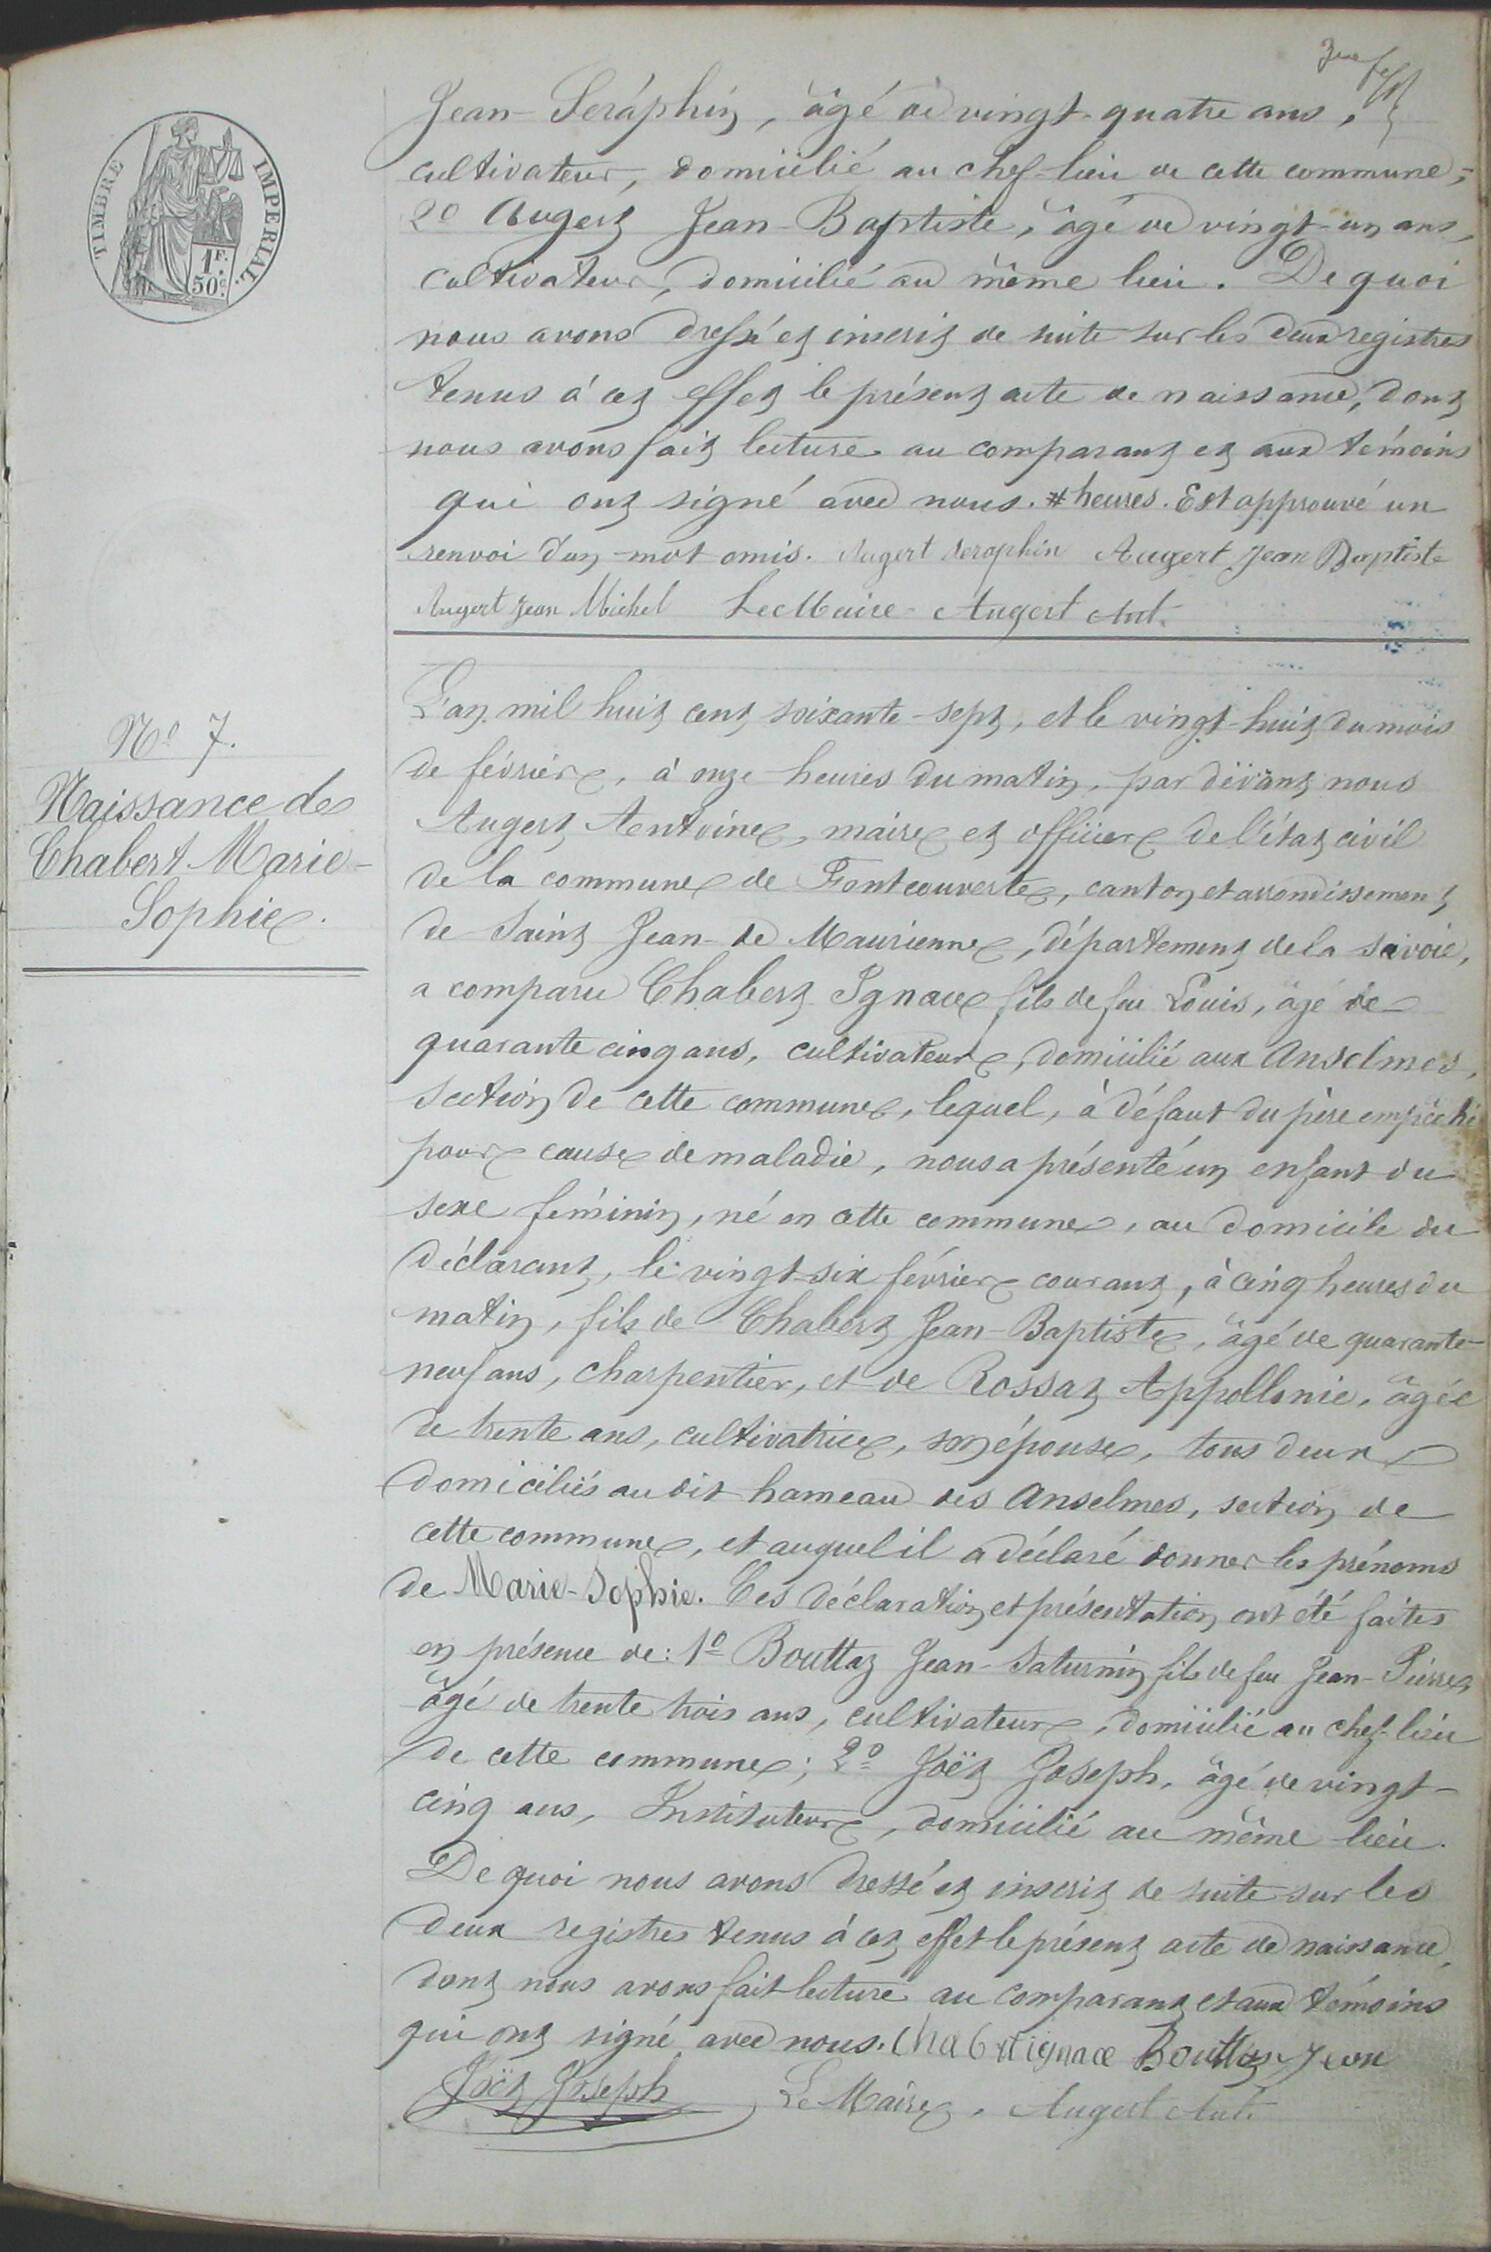 Jean-Séraphin, âgé de vingt-quatre ans,
cultivateur, domicilié au chef-lieu de cette commune;
2º Augert Jean-Baptiste, âgé de vingt-un ans,
cultivateur, domicilié au même lieu. De quoi
nous avons dressé et inscrit de suite sur les deux registres
tenus à cet effet le présent acte de naissance, dont
nous avons fait lecture au comparant et aux témoins
qui ont signé avec nous. # heures. Est approuvé un
renvoi d'un mot omis. Augert Seraphin Augert Jean Baptiste
Augert Jean Michel Le Maire Augert Ant.
TIMBRE IMPERIAL
1F.
50c.
Nº 7.
Naissance de
Chabert Marie-
Sophie.
L'an mil huit cent soixante-sept, et le vingt-huit du mois
de février, à onze heures du matin, par devant nous
Augert Antoine, maire et officier de l'état civil
de la commune de Fontcouverte, canton et arrondissement
de Saint Jean-de Maurienne, département de la Savoie,
a comparu Chabert Ignace fils de feu Louis, âgé de
quarante cinq ans, cultivateur, domicilié aux Anselmes,
section de cette commune, lequel, à défaut du père empêché
pour cause de maladie, nous a présenté un enfant du
sexe féminin, né en cette commune, au domicile du
déclarant, le vingt-six février courant, à cinq heures du
matin, fils de Chabert Jean-Baptiste, âgé de quarante-
neuf ans, charpentier, et de Rossat Appollonie, âgée
de trente ans, cultivatrice, son épouse, tous deux
domiciliés au dit hameau des Anselmes, section de
cette commune, et auquel il a déclaré donner les prénoms
de Marie-Sophie. Ces déclaration et présentation ont été faites
en présence de: 1º Bouttaz Jean-Saturnin fils de feu Jean-Pierre,
âgé de trente trois ans, cultivateur, domicilié au chef-lieu
de cette commune; 2º Joët Joseph, âgé de vingt-
cinq ans, Instituteur, domicilié au même lieu.
De quoi nous avons dressé et inscrit de suite sur les
deux registres tenus à cet effet le présent acte de naissance,
dont nous avons fait lecture au comparant et aux témoins
qui ont signé avec nous. Chabert ignace Bouttaz Jean
Joët Joseph Le Maire, Augert Ant.